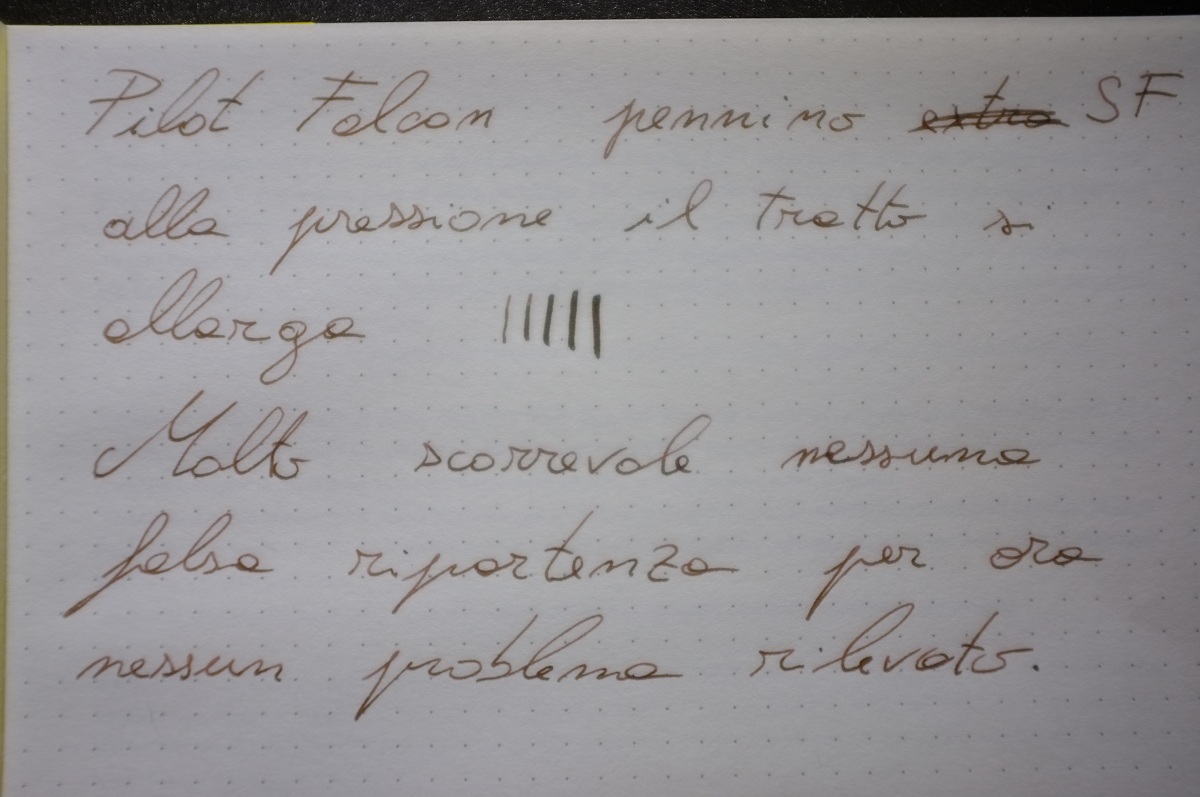 Pilot Falcon pennino extra SF
alla pressione il tratto si
allarga
Molto scorrevole nessuna
falsa ripartenza per ora
nessun problema rilevato.